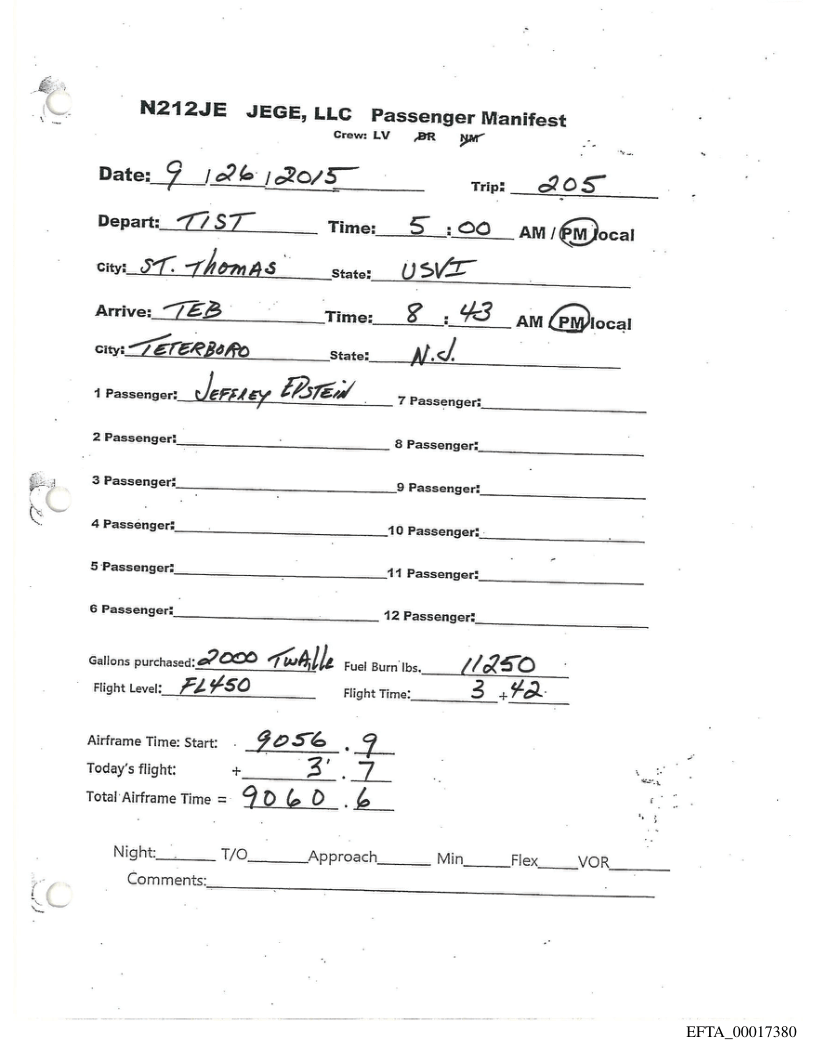 N212JE JEGE, LLC Passenger Manifest
Crew: LV BR NM
Date: 9 / 26 / 2015 Trip: 205
Depart: TIST Time: 5 : 00 AM / PM local
City: ST. Thomas State: USVI
Arrive: TEB Time: 8 : 43 AM / PM local
City: TETERBORO State: N.J.
1 Passenger: JEFFREY EPSTEIN 7 Passenger:
2 Passenger: 8 Passenger:
3 Passenger: 9 Passenger:
4 Passenger: 10 Passenger:
5 Passenger: 11 Passenger:
6 Passenger: 12 Passenger:
Gallons purchased: 2000 Fuel Burn lbs. 11250
Flight Level: FL450 Flight Time: 3 + 42
Airframe Time: Start: 9056 . 9
Today's flight: + 3 . 7
Total Airframe Time = 9060 . 6
Night: T/O Approach Min Flex VOR
Comments:
EFTA_00017380